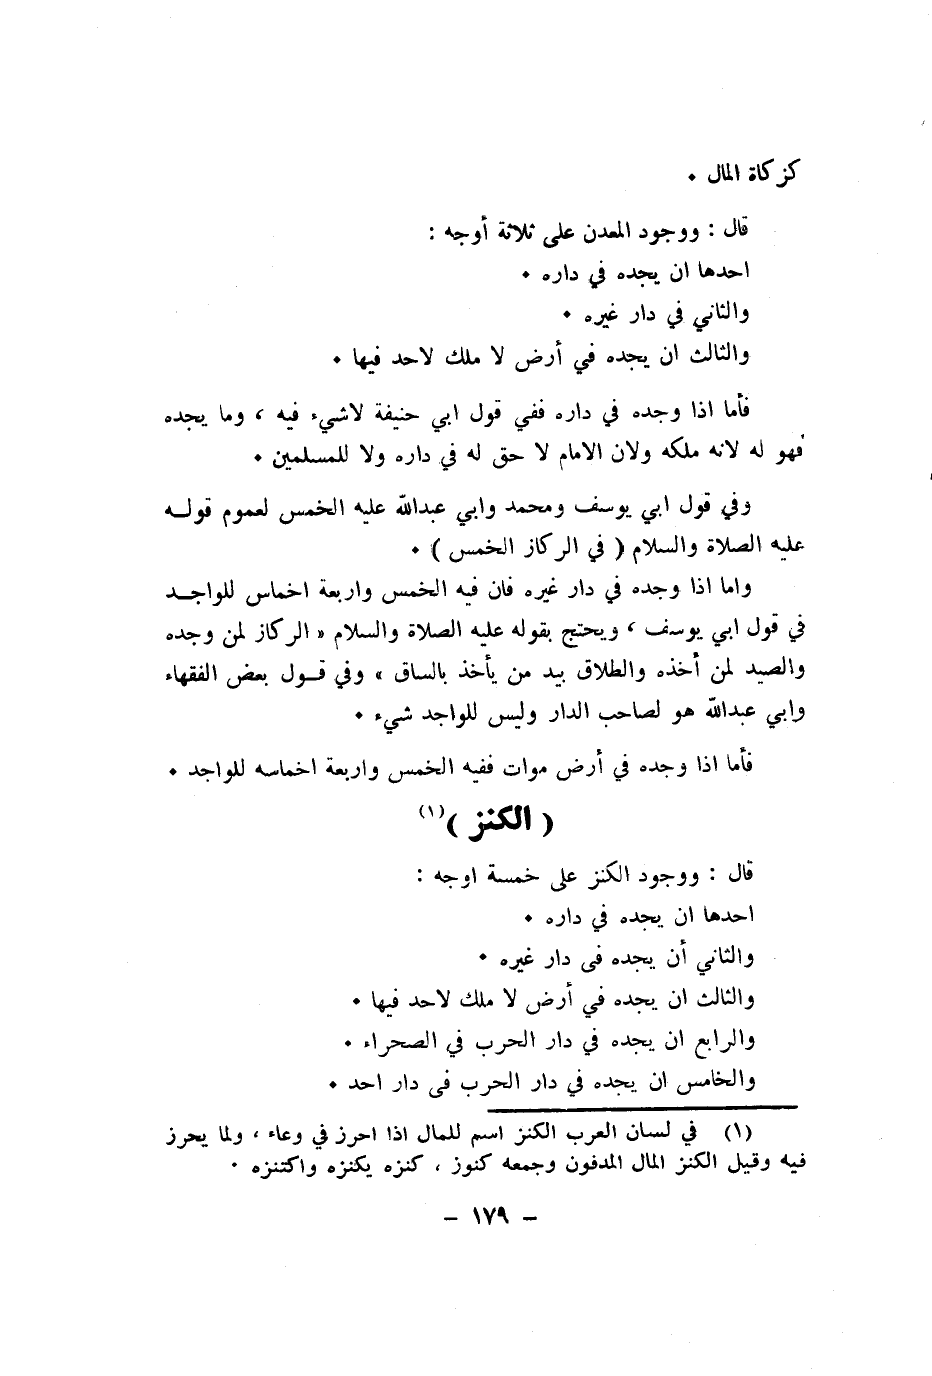 كزكاة المال .
قال : ووجود المعدن على ثلاثة أوجه :
احدها ان يجده في داره .
والثاني في دار غيره .
والثالث ان يجده في أرض لا ملك لاحد فيها .
فأما اذا وجده في داره ففي قول ابي حنيفة لاشيء فيه ، وما يجده
فهو له لانه ملكه ولان الامام لا حق له في داره ولا للمسلمين .
وفي قول ابي يوسف ومحمد وابي عبدالله عليه الخمس لعموم قولـه
عليه الصلاة والسلام ( في الركاز الخمس ) .
واما اذا وجده في دار غيره فان فيه الخمس واربعة اخماس للواجـد
في قول ابي يوسف ، ويحتج بقوله عليه الصلاة والسلام « الركاز لمن وجده
والصيد لمن أخذه والطلاق بيد من يأخذ بالساق » وفي قـول بعض الفقهاء
وابي عبدالله هو لصاحب الدار وليس للواجد شيء .
فأما اذا وجده في أرض موات ففيه الخمس واربعة اخماسه للواجد .
( الكنز )(١)
قال : ووجود الكنز على خمسة اوجه :
احدها ان يجده في داره .
والثاني أن يجده فى دار غيره .
والثالث ان يجده في أرض لا ملك لاحد فيها .
والرابع ان يجده في دار الحرب في الصحراء .
والخامس ان يجده في دار الحرب فى دار احد .
(١) في لسان العرب الكنز اسم للمال اذا احرز في وعاء ، ولما يحرز
فيه وقيل الكنز المال المدفون وجمعه كنوز ، كنزه يكنزه واكتنزه .
- ١٧٩ -